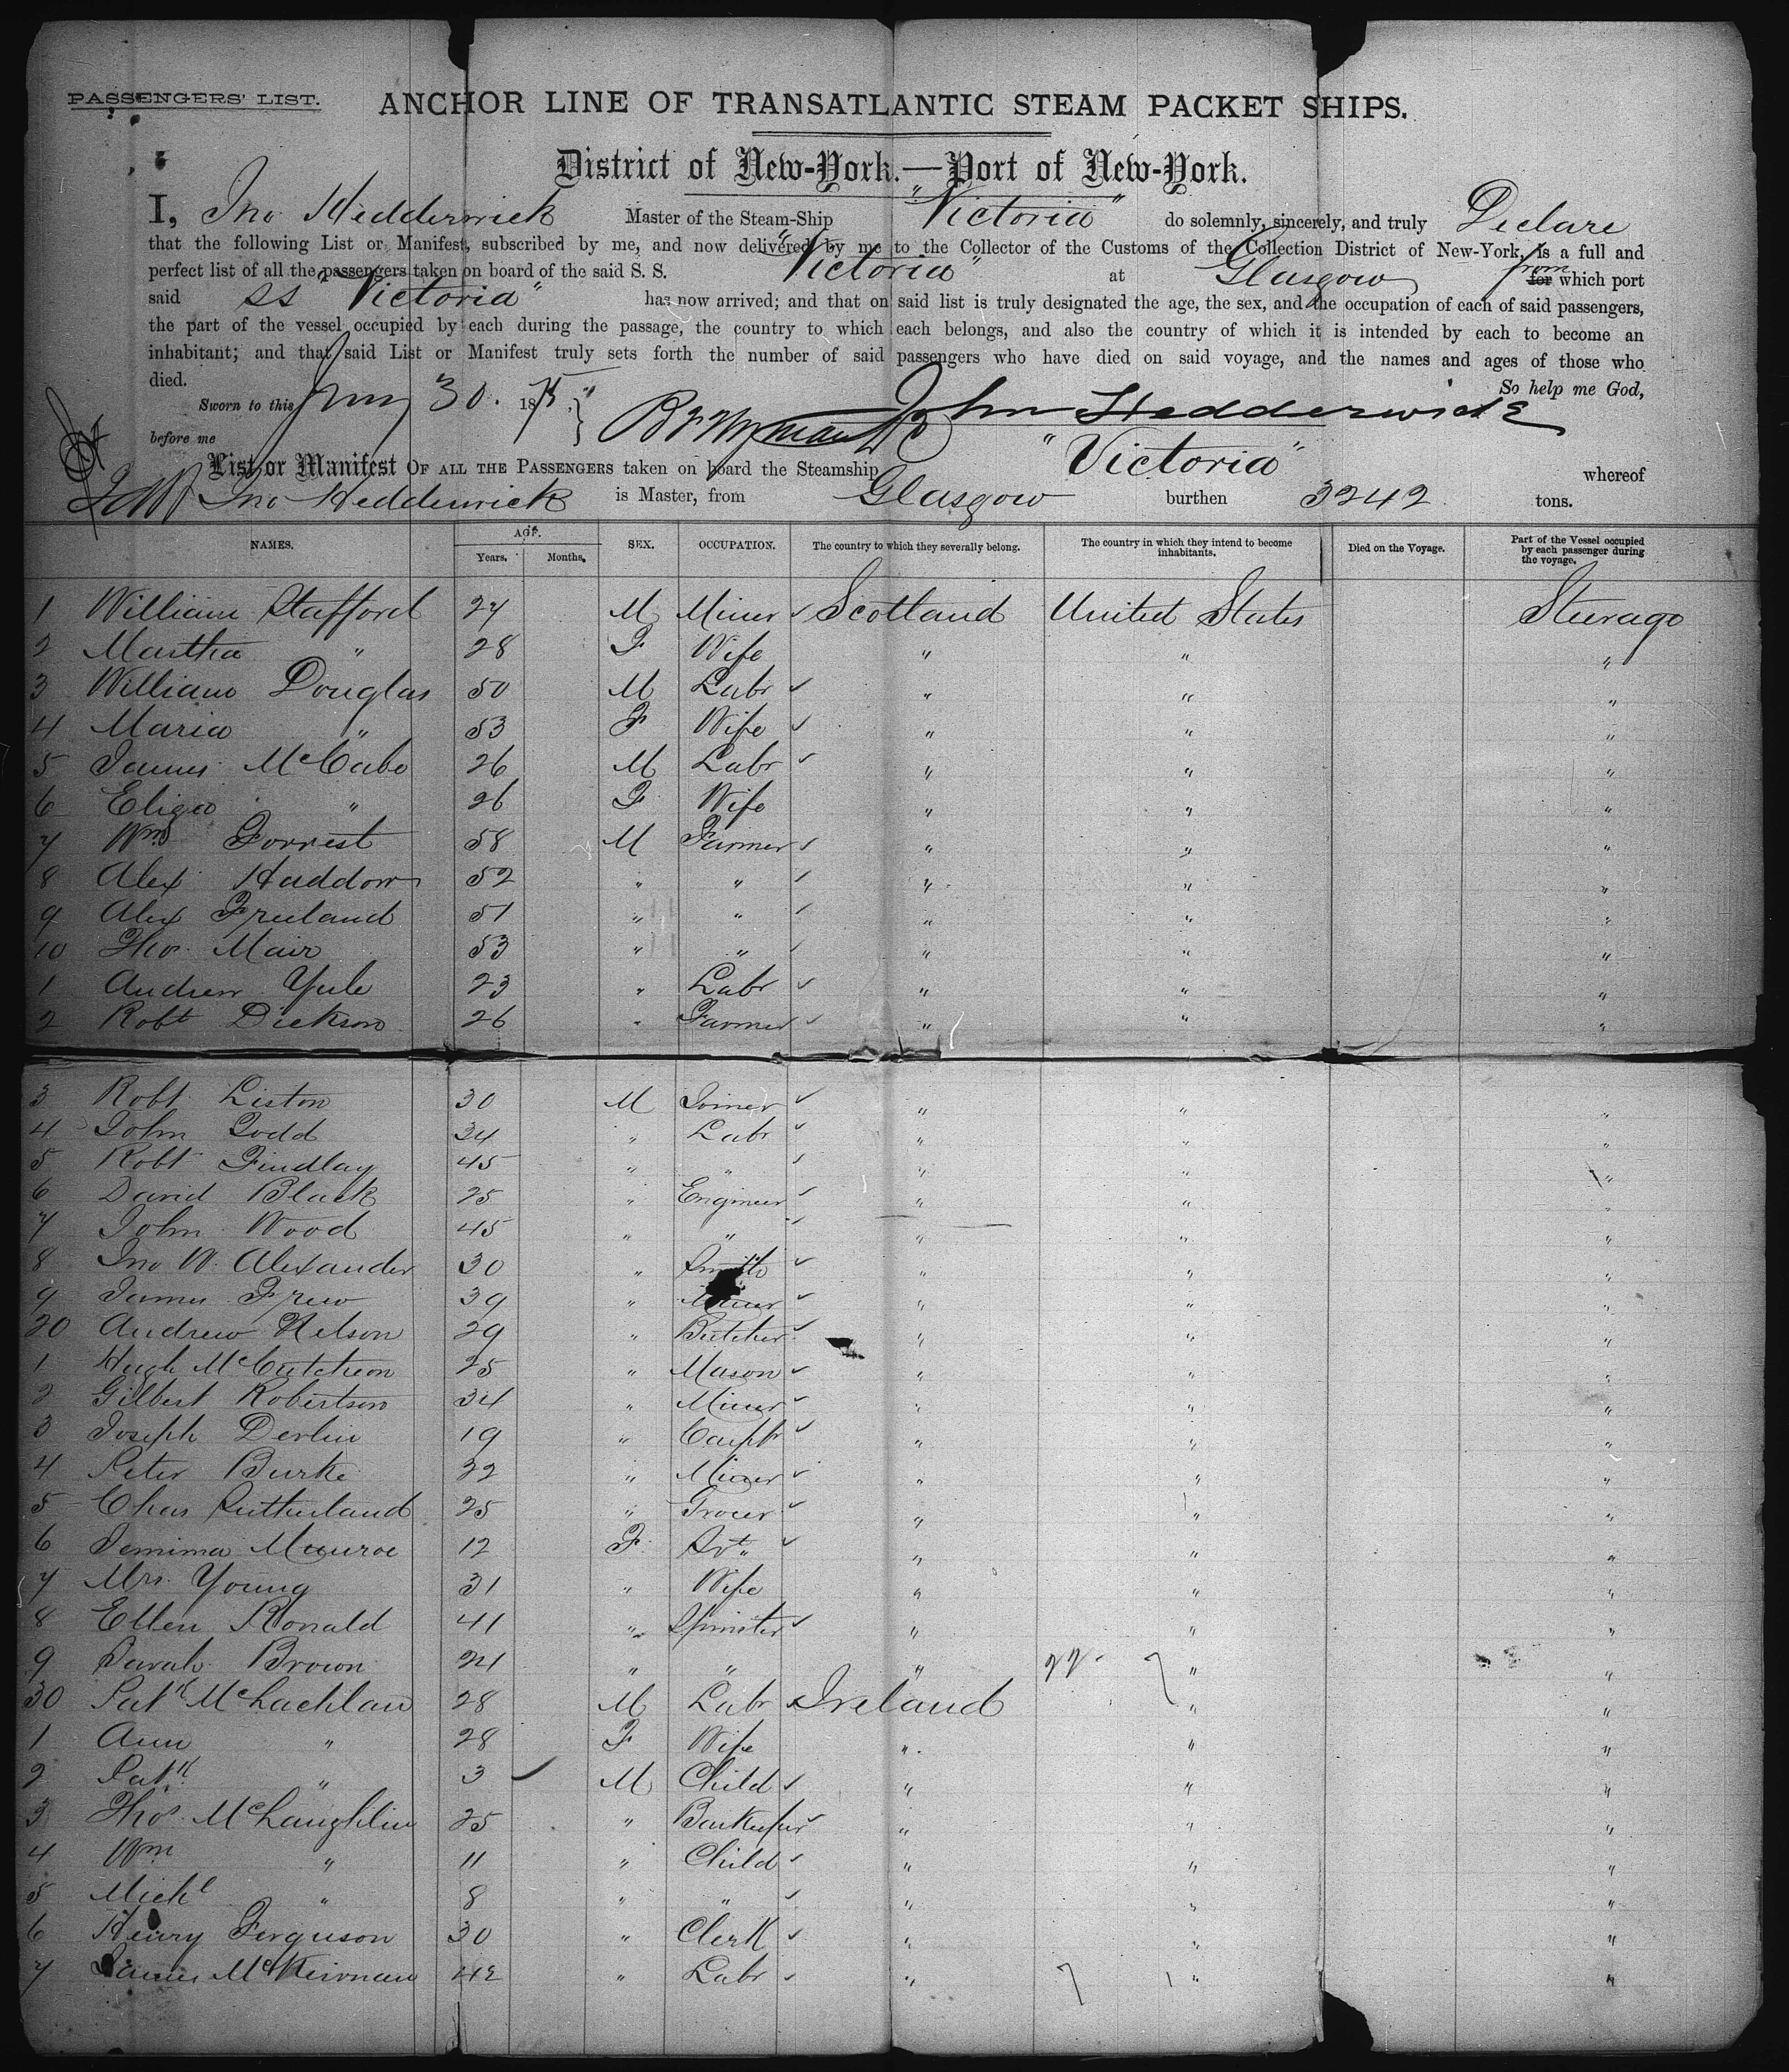 PASSENGERS' LIST.
ANCHOR LINE OF TRANSATLANTIC STEAM PACKET SHIPS.
District of New-York.—Port of New-York.
I, Jno Hedderwick Master of the Steam-Ship "Victoria" do solemnly, sincerely, and truly Declare
that the following List or Manifest, subscribed by me, and now delivered by me to the Collector of the Customs of the Collection District of New-York, is a full and
perfect list of all the passengers taken on board of the said S. S. "Victoria" at Glasgow from for which port
said SS "Victoria" has now arrived; and that on said list is truly designated the age, the sex, and the occupation of each of said passengers,
the part of the vessel occupied by each during the passage, the country to which each belongs, and also the country of which it is intended by each to become an
inhabitant; and that said List or Manifest truly sets forth the number of said passengers who have died on said voyage, and the names and ages of those who
died. So help me God,
Sworn to this 30. 1875 John Hedderwick
before me
List or Manifest OF ALL THE PASSENGERS taken on board the Steamship "Victoria" whereof
Jno Hedderwick is Master, from Glasgow burthen 3242 tons.
NAMES. AGE. Years. Months. SEX. OCCUPATION. The country to which they severally belong. The country in which they intend to become inhabitants. Died on the Voyage. Part of the Vessel occupied by each passenger during the voyage.
1 William Stafford 27 M Miner Scotland United States Steerage
2 Martha " 28 F Wife " " "
3 William Douglas 50 M Labr " " "
4 Maria " 53 F Wife " " "
5 James McCabe 26 M Labr " " "
6 Eliza " 26 F Wife " " "
7 Wm Forrest 58 M Farmer " " "
8 Alex Haddow 52 " " " " "
9 Alex Freeland 51 " " " " "
10 Thos Mair 53 " " " " "
1 Andrew Yule 23 " Labr " " "
2 Robt Dickson 26 " Farmer " " "
3 Robt Liston 30 M Joiner " " "
4 John Todd 34 " Labr " " "
5 Robt Findlay 45 " " " " "
6 David Black 25 " Engineer " " "
7 John Wood 45 " " " " "
8 Jno W. Alexander 30 " Smith " " "
9 James Frew 39 " Miner " " "
20 Andrew Nelson 29 " Butcher " " "
1 Hugh McCutcheon 25 " Mason " " "
2 Gilbert Robertson 34 " Miner " " "
3 Joseph Devlin 19 " Carptr " " "
4 Peter Burke 22 " Miner " " "
5 Chas Sutherland 25 " Grocer " " "
6 Jemima Munroe 12 F Svt " " "
7 Mrs. Young 31 " Wife " " "
8 Ellen Ronald 41 " Spinster " " "
9 Sarah Brown 24 " " " "  "
30 Patk McLachlan 28 M Labr Ireland " "
1 Ann " 28 F Wife " " "
2 Patk " 3 M Child " " "
3 Thos McLaughlin 25 " Barkeeper " " "
4 Wm " 11 " Child " " "
5 Michl " 8 " " " " "
6 Henry Ferguson 30 " Clerk " " "
7 James McKiernan 42 " Labr " " "